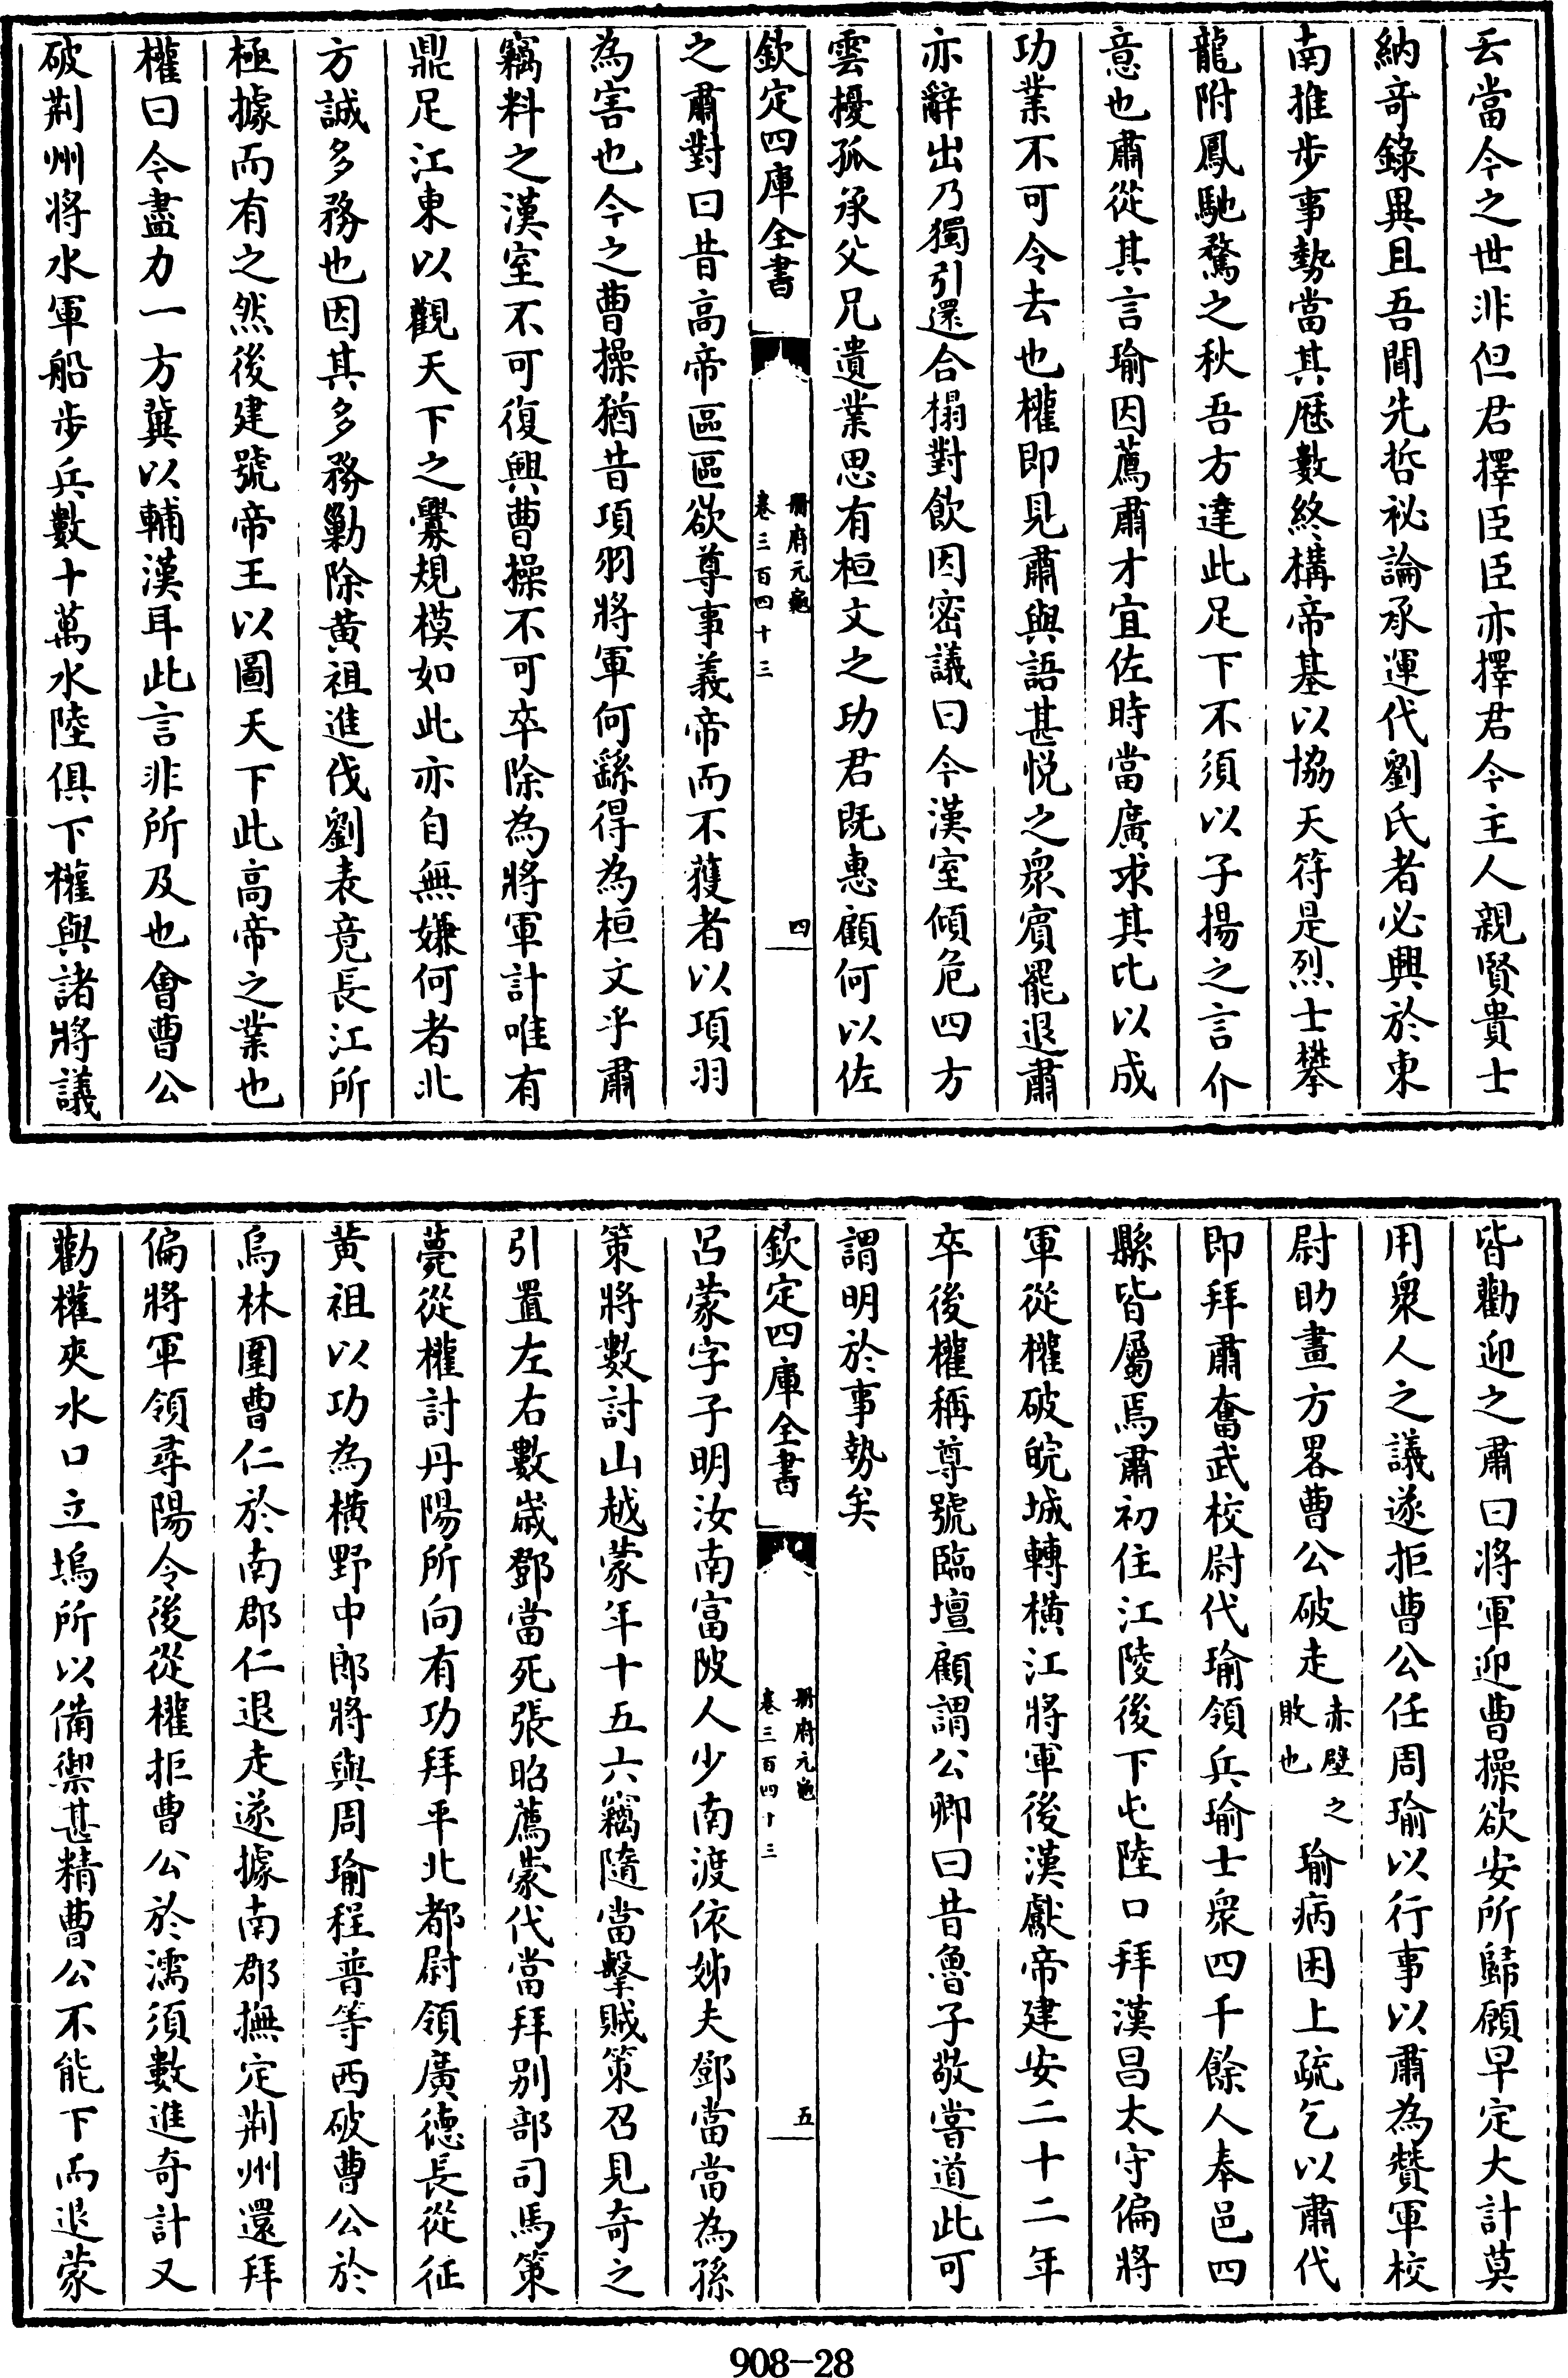 云當今之世非但君擇臣臣亦擇君今主人親賢貴士
納竒錄異且吾聞先哲祕論承運代劉氏者必興於東
南推歩事勢當其歴數終構帝基以協天符是烈士攀
龍附鳳馳騖之秋吾方達此足下不須以子揚之言介
意也肅從其言瑜因薦肅才宜佐時當廣求其比以成
功業不可令去也權即見肅與語甚悦之衆賔罷退肅
亦辭出乃獨引還合榻對飲因密議曰今漢室傾危四方
雲擾孤承父兄遺業思有桓文之功君既惠顧何以佐
欽定四庫全書
册府元龜
卷三百四十三
四
之肅對曰昔高帝區區欲尊事義帝而不獲者以項羽
為害也今之曹操猶昔項羽將軍何繇得為桓文乎肅
竊料之漢室不可復興曹操不可卒除為將軍計唯有
鼎足江東以觀天下之釁規模如此亦自無嫌何者北
方誠多務也因其多務勦除黄祖進伐劉表竟長江所
極據而有之然後建號帝王以圖天下此高帝之業也
權曰今盡力一方冀以輔漢耳此言非所及也會曹公
破荆州將水軍船歩兵數十萬水陸俱下權與諸將議
皆勸迎之肅曰將軍迎曹操欲安所歸願早定大計莫
用衆人之議遂拒曹公任周瑜以行事以肅為贊軍校
尉助畫方畧曹公破走赤壁之敗也瑜病困上疏乞以肅代
即拜肅奮武校尉代瑜領兵瑜士衆四千餘人奉邑四
縣皆屬焉肅初住江陵後下屯陸口拜漢昌太守偏將
軍從權破皖城轉橫江將軍後漢獻帝建安二十二年
卒後權稱尊號臨壇顧謂公卿曰昔魯子敬嘗道此可
謂明於事勢矣
欽定四庫全書
册府元龜
卷三百四十三
五
呂蒙字子明汝南富陂人少南渡依姊夫鄧當當為孫
策將數討山越蒙年十五六竊隨當擊賊策召見奇之
引置左右數嵗鄧當死張昭薦蒙代當拜别部司馬策
薨從權討丹陽所向有功拜平北都尉領廣德長從征
黄祖以功為橫野中郎將與周瑜程普等西破曹公於
烏林圍曹仁於南郡仁退走遂據南郡撫定荆州還拜
偏將軍領尋陽令後從權拒曹公於濡須數進奇計又
勸權夾水口立塢所以備禦甚精曹公不能下而退蒙
908-28